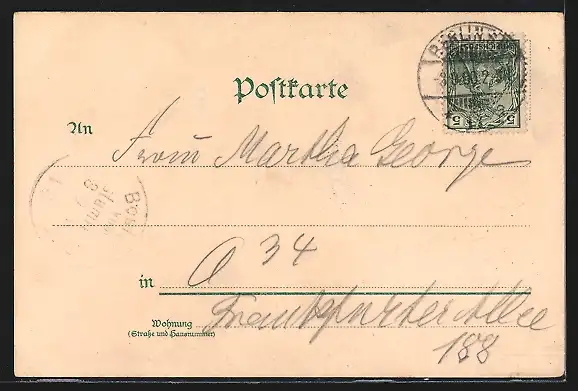 BERLIN
Postkarte
5 5
An Frau Martha George
in O 34
Wohnung
(Straße und Hausnummer)
Frankfurter Allee
188